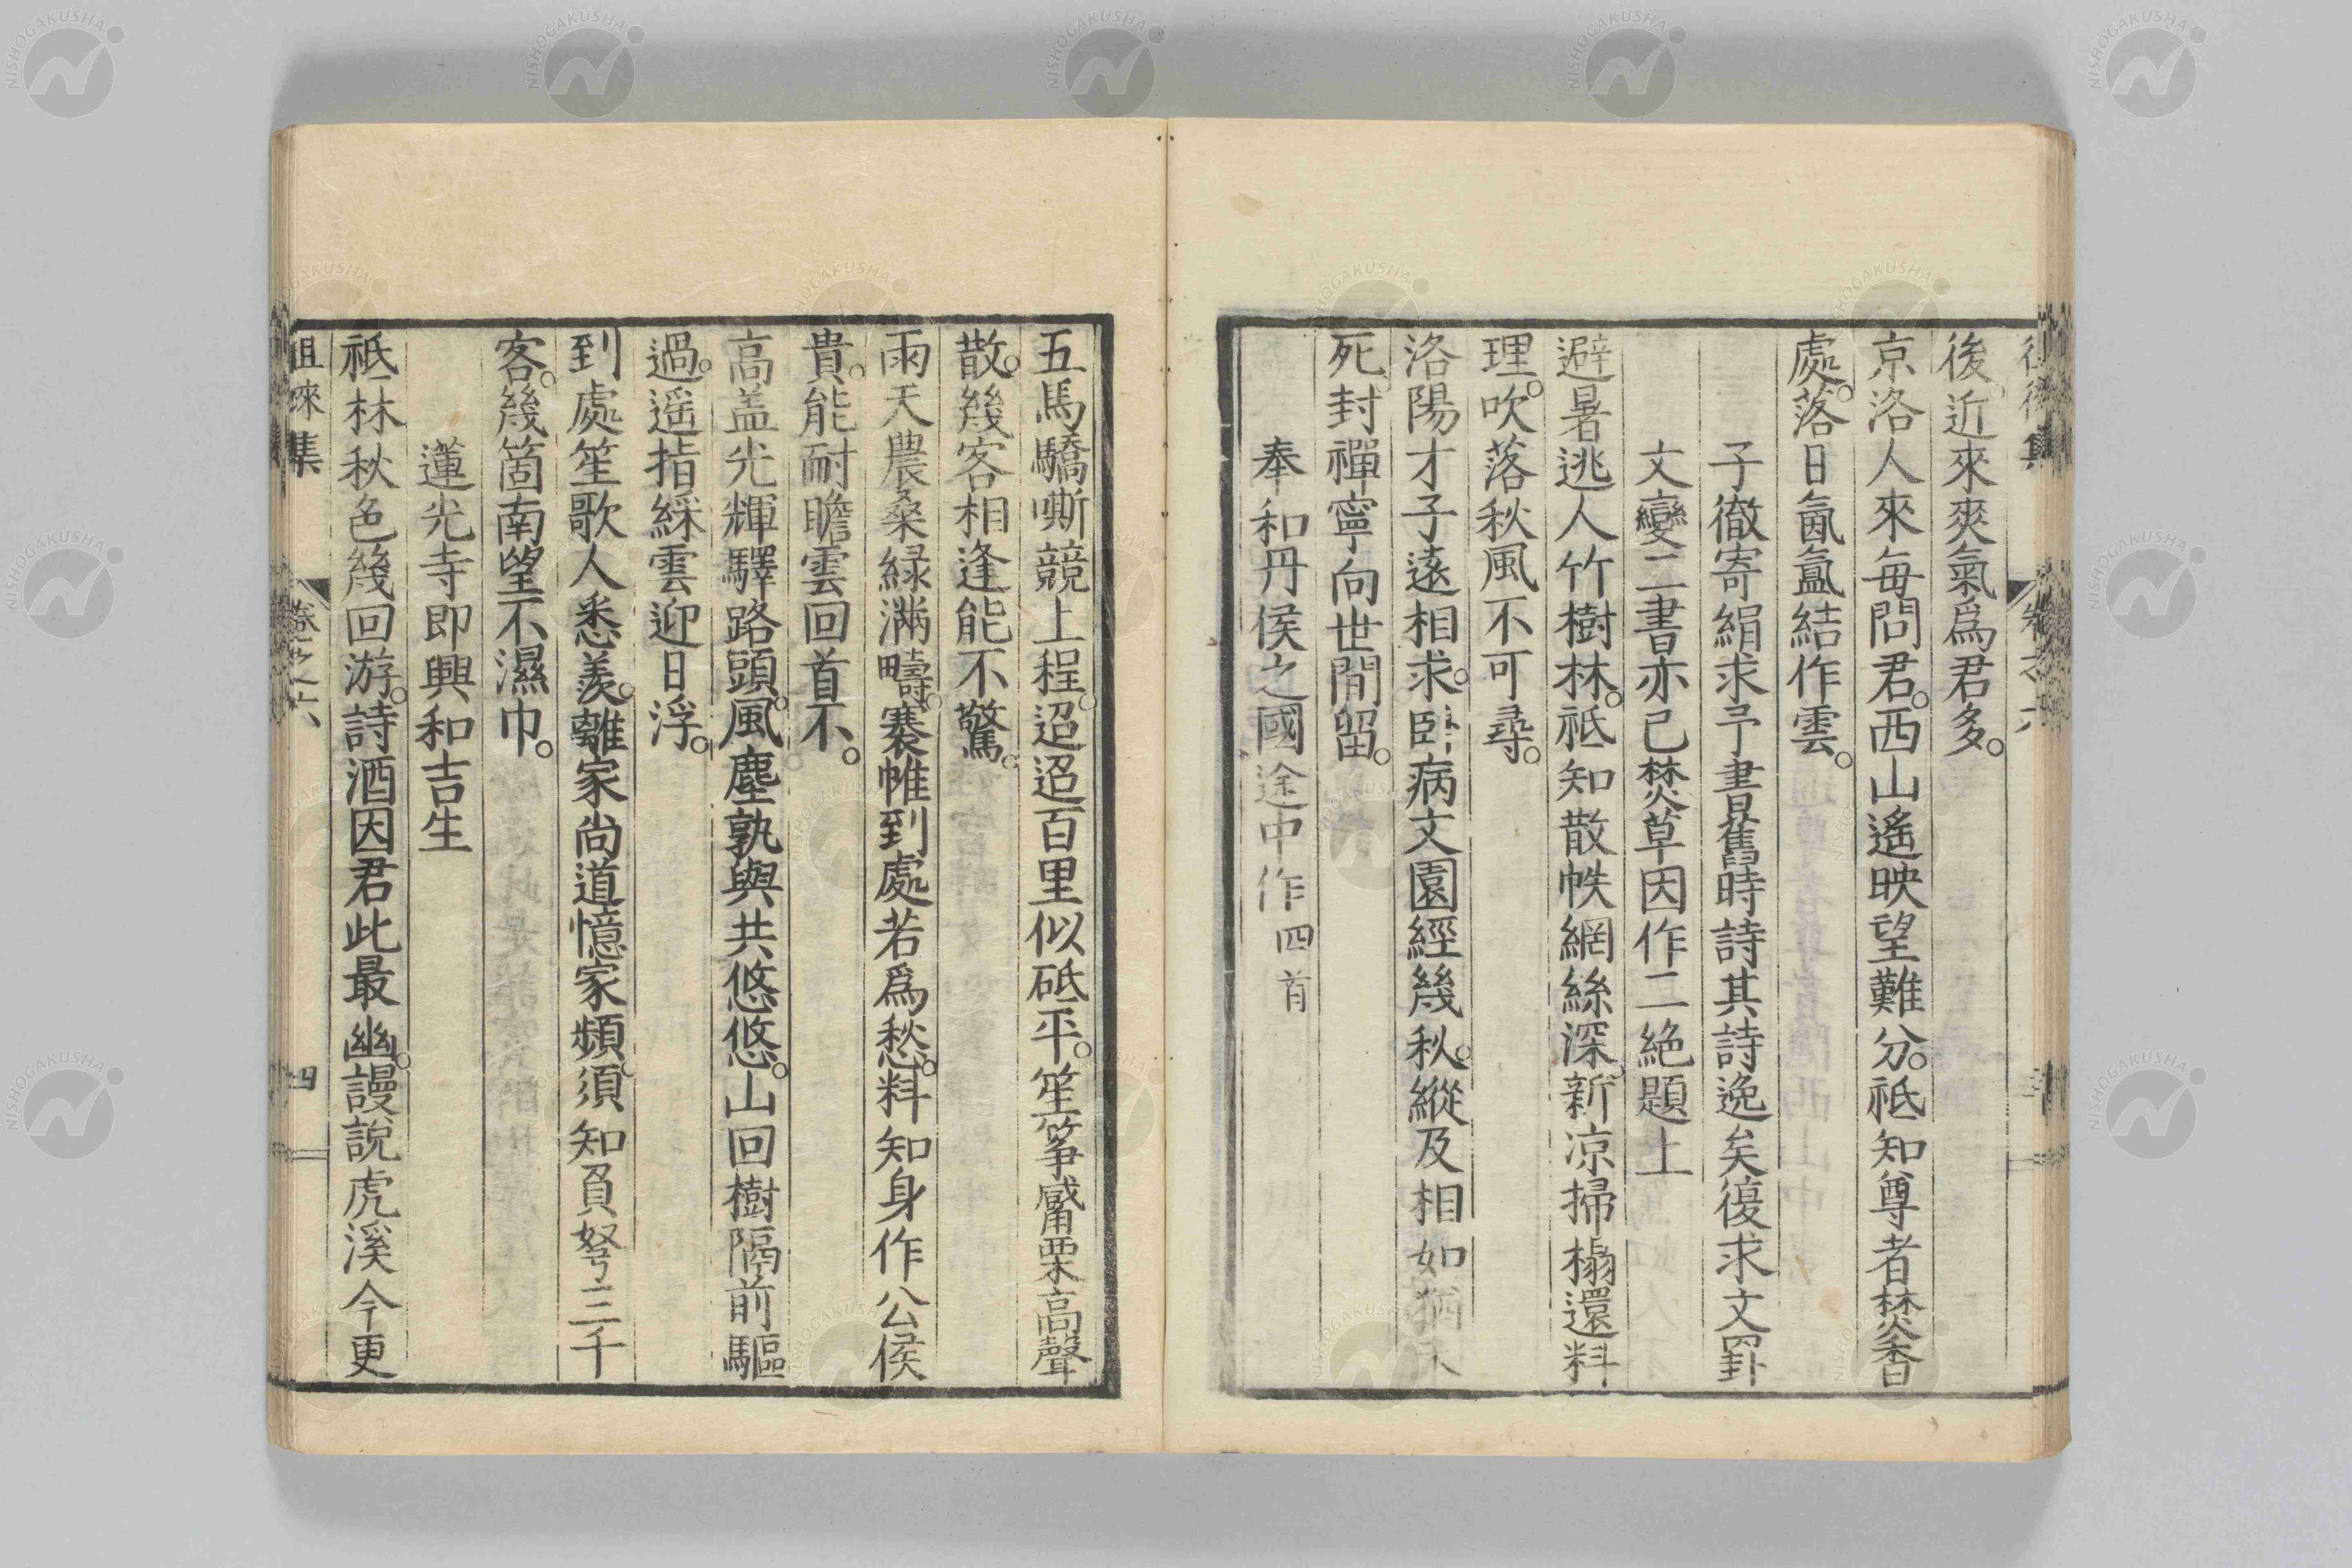 後近來爽氣爲君多。
京洛人來每問君。西山遙映望難分。祗知尊者焚香
處。落日氤氳結作雲。
子徹寄絹求予書舊時詩其詩逸矣復求文罫
文變二書亦已焚草因作二絶題上
避暑逃人竹樹林。祗知散帙網絲深。新凉掃榻還料
理。吹落秋風不可尋。
洛陽才子遠相求。臥病文園經幾秋。縱及相如猶未
死。封禪寧向世間留。
奉和丹侯之國途中作四首
五馬驕嘶競上程。迢迢百里似砥平。笙筝觱栗高聲
散。幾客相逢能不驚。
雨天農桑緑滿疇。褰帷到處若爲愁。料知身作公侯
貴。能耐瞻雲回首不。
高盖光輝驛路頭。風塵孰與共悠悠。山回樹隔前驅
過。遥指綵雲迎日浮。
到處笙歌人悉羨。離家尚道憶家頻。須知負弩三千
客。幾箇南望不濕巾。
蓮光寺即興和吉生
祗林秋色幾回游。詩酒因君此最幽。謾說虎溪今更
徂徠集
卷之六
四